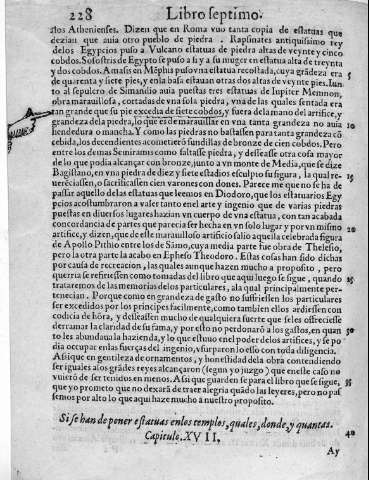 228 Libro septimo.
los Athenienses. Dizen que en Roma vuo tanta copia de estatuas que
dezian que auia otro pueblo de piedra. Rapsinates antiquissimo rey
delos Egypcios puso a Vulcano estatuas de piedra altas de veynte y cinco
cobdos. Sosostris de Egypto se puso a si y a su muger en estatua alta de treynta
y dos cobdos. Amasis en Mẽphis puso vna estatua recostada, cuya grãdeza era 5
de quarenta y siete pies, y en la basis estauan otras dos altas de veynte pies. Iun
to al sepulcro de Simandio auia puestas tres estatuas de Iupiter Memnon,
obra marauillosa, cortadas de vna sola piedra, vna de las quales sentada era
tan grande que su pie excedia de siete cobdos, y fuera dela mano del artifice, y
grandeza dela piedra, lo que es de marauillar en vna tanta grandeza no auia 10
hendedura o mancha. Y como las piedras no bastassen para tanta grandeza cõ
cebida, los decendientes acometierõ fundillas de bronze de cien cobdos. Pero
entre los demas Semiramis como faltasse piedra, y desseasse otra cosa mayor
de lo que podia alcançar con bronze, junto a vn monte de Media, que se dize
Bagistano, en vna piedra de diez y siete estadios esculpio su figura, la qual re- 15
uerẽciassen, o sacrificassen cien varones con dones. Pareceme que no se ha de
passar aquello delas estatuas que leemos en Diodoro, que los estatuarios Egy
pcios acostumbraron a valer tanto enel arte y ingenio que de varias piedras
puestas en diuersos lugares hazian vn cuerpo de vna estatua, con tan acabada
concordancia de partes que parecia ser hecha en vn solo lugar y por vn mismo 20
artifice, y dizen, que de este marauilloso artificio salio aquella celebrada figura
de Apollo Pithio entre los de Samo, cuya media parte fue obra de Thelesio,
pero la otra parte la acabo en Epheso Theodoro. Estas cosas han sido dichas
por causa de recreacion, las quales aunque hazen mucho a proposito, pero
querria se refiriessen como tomadas del libro que aqui luego se sigue, quando
trataremos de las memorias delos particulares, ala qual principalmente per-
tenecian. Porque como en grandeza de gasto no suffriessen los particulares
ser excedidos por los principes facilmente, como tambien ellos ardiessen con
codicia de hõra, y desseassen mucho de qualquiera fuerte que se les offreciesse
derramar la claridad de su fama, y por esto no perdonarõ a los gastos, en quan 30
to les abundaua la hazienda, y lo que estuuo en el poder delos artifices, y se po
dia occupar en las fuerças del ingenio, vsurparon lo esso con toda diligencia.
Assi que en gentileza de ornamentos, y honestidad dela obra contendiendo
ser iguales a los grãdes reyes alcançaron (segun yo juzgo) que en este caso no
vuierõ de ser tenidos en menos. Assi que guarden se para el libro que se sigue, 35
que yo prometo que no dexarã de traer alegria quãdo las leyeres, pero no pas
semos por alto lo que aqui haze mucho à nuestro proposito.
Si se han de poner estatuas en los templos, quales, donde, y quantas.
Capitulo. XVII. 40
Ay